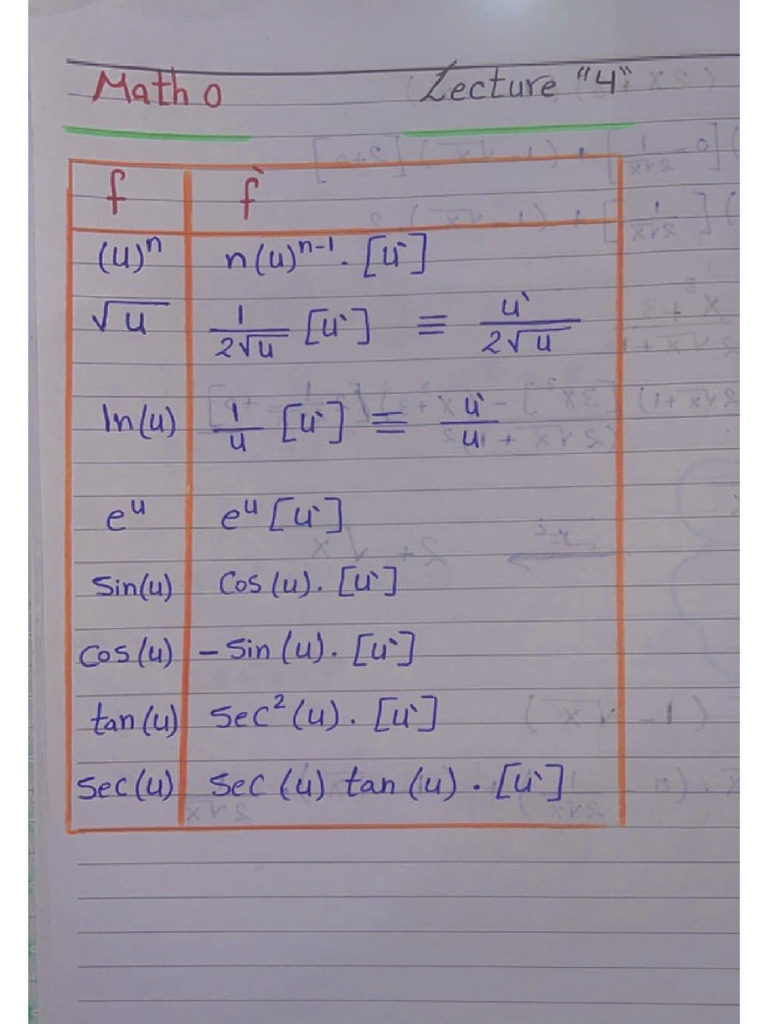 Math 0 Lecture "4"
f f`
(u)ⁿ n(u)ⁿ⁻¹. [u`]
√u 1/2√u [u`] ≡ u`/2√u
ln(u) 1/u [u`] ≡ u`/u
eᵘ eᵘ [u`]
Sin(u) Cos(u). [u`]
Cos(u) -Sin(u). [u`]
tan(u) Sec²(u). [u`]
Sec(u) Sec(u) tan(u). [u`]